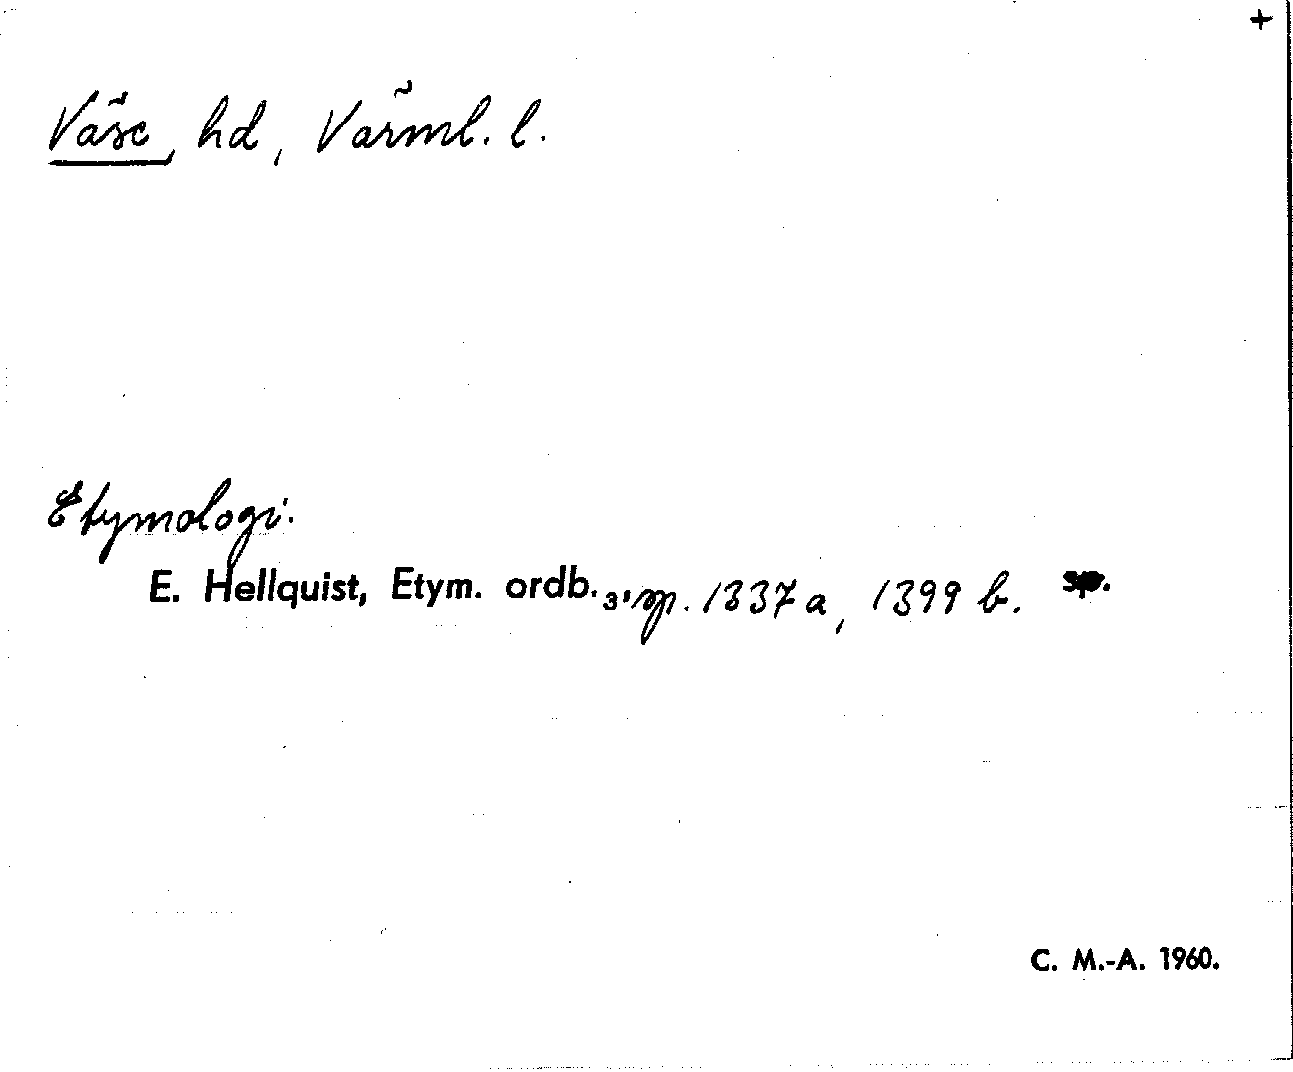 +
Väse, hd, Värml. l.
Etymologi.
E. Hellquist, Etym. ordb.3, sp. 1337 a, 1399 b. sp.
C. M.-A. 1960.